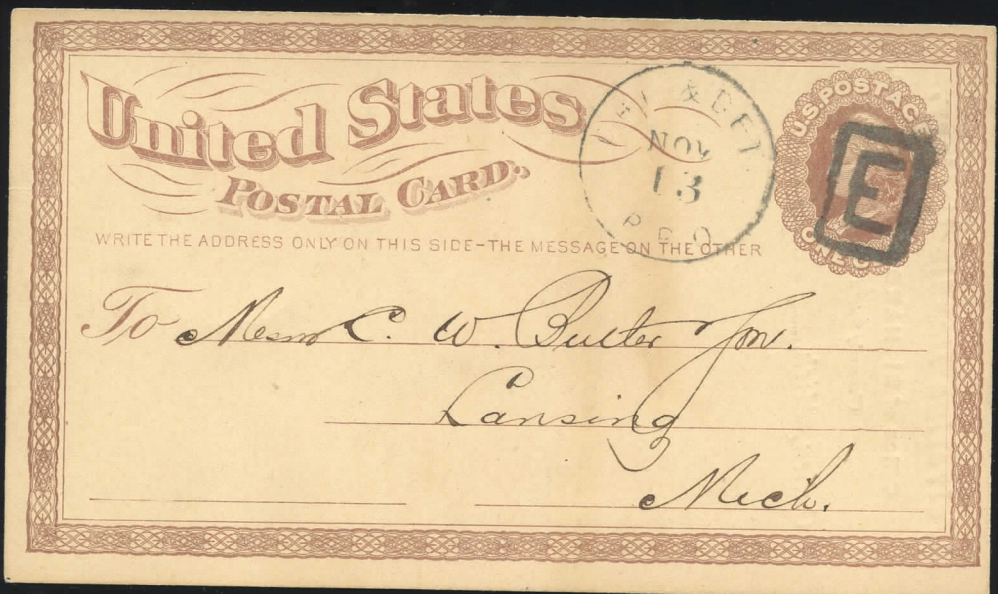 United States
POSTAL CARD.
WRITE THE ADDRESS ONLY ON THIS SIDE-THE MESSAGE ON THE OTHER
& DET
NOV
13
R.P.O.
U.S. POSTAGE
ONE
E
To Messrs C. W. Butler
Lansing
Mich.